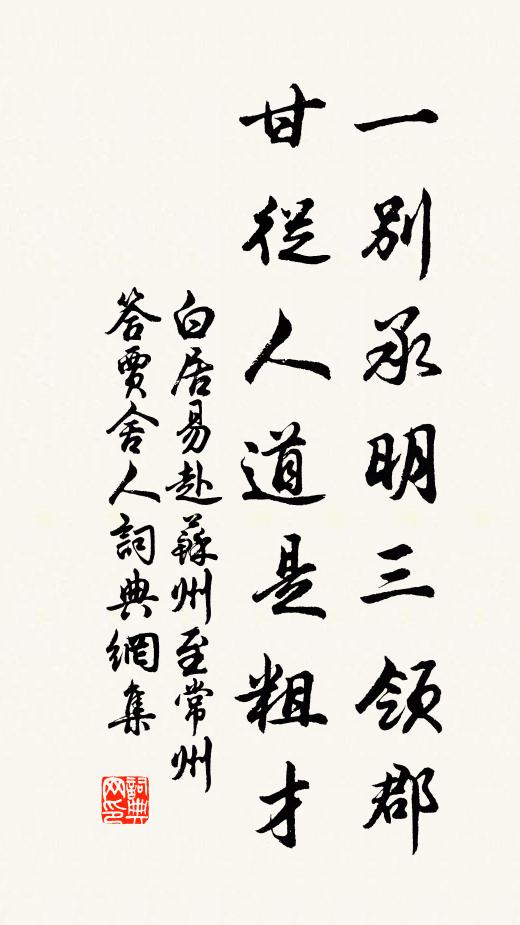 一別承明三領郡
甘從人道是粗才
白居易赴蘇州至常州
答賈舍人詞典網集
詞典
网印